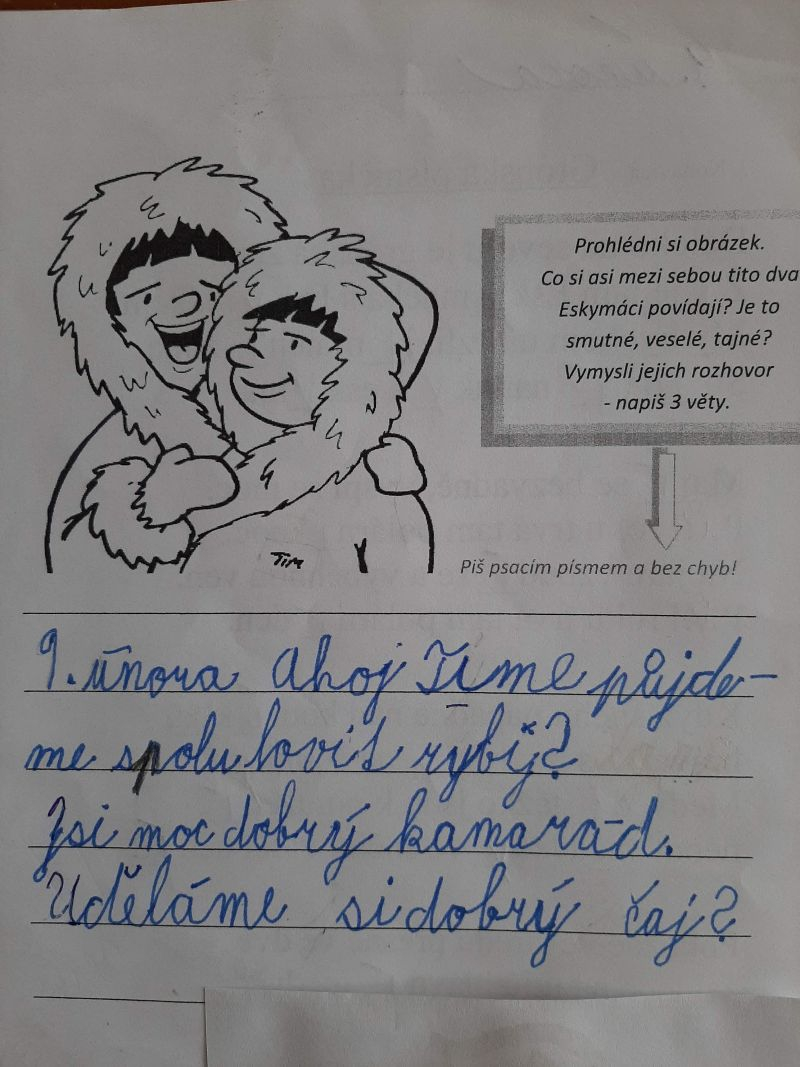 Prohlédni si obrázek.
Co si asi mezi sebou tito dva
Eskymáci povídají? Je to
smutné, veselé, tajné?
Vymysli jejich rozhovor
- napiš 3 věty.
Tim
Piš psacím písmem a bez chyb!
9. února Ahoj Time půjde-
me spolu lovit rybiř?
Jsi moc dobrý kamarád.
Uděláme si dobrý čaj?